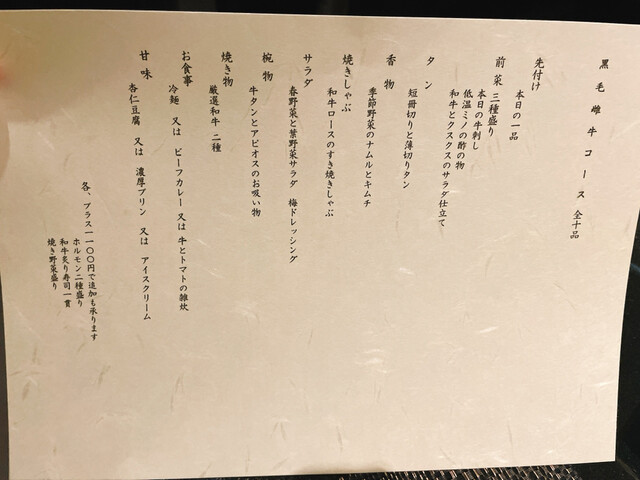 黒毛雌牛コース 全十品
先付け
本日の一品
前菜 三種盛り
本日の牛刺し
低温ミノの酢の物
和牛とクスクスのサラダ仕立て
タン
短冊切りと薄切りタン
香物
季節野菜のナムルとキムチ
焼きしゃぶ
和牛ロースのすき焼きしゃぶ
サラダ
春野菜と葉野菜サラダ 梅ドレッシング
椀物
牛タンとアピオスのお吸い物
焼き物
厳選和牛 二種
お食事
冷麺 又は ビーフカレー 又は 牛とトマトの雑炊
甘味
杏仁豆腐 又は 濃厚プリン 又は アイスクリーム
各、プラス一一〇〇円で追加も承ります
ホルモン二種盛り
和牛炙り寿司一貫
焼き野菜盛り